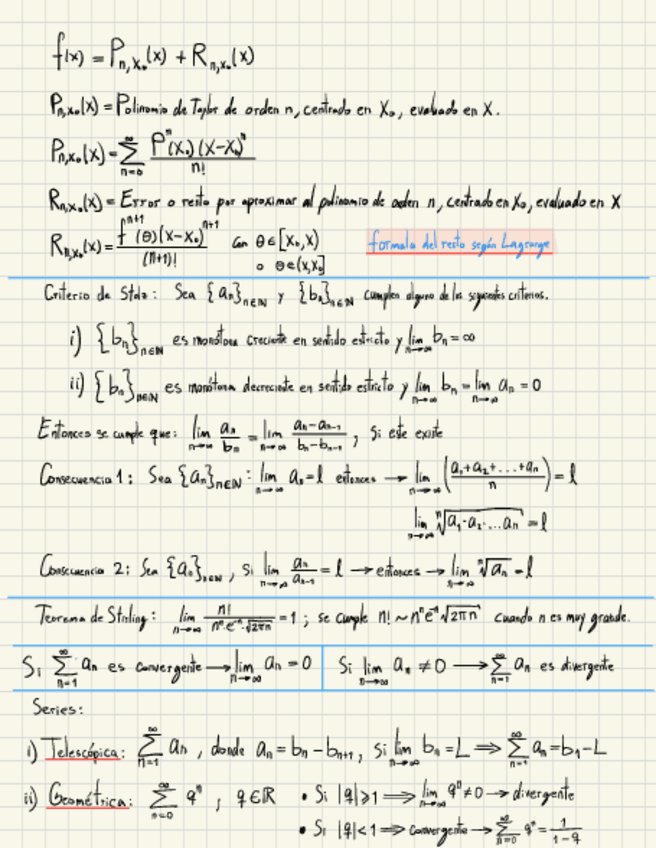 f(x) = P_{n,x₀}(x) + R_{n,x₀}(x)
P_{n,x₀}(x) = Polinomio de Taylor de orden n, centrado en X₀, evaluado en X.
P_{n,x₀}(x) = \sum_{n=0}^{∞} \frac{P^n(x₀)(x-x₀)^n}{n!}
R_{n,x₀}(x) = Error o resto por aproximar al polinomio de orden n, centrado en X₀, evaluado en X
R_{n,x₀}(x) = \frac{f^{n+1}(θ)(x-x₀)^{n+1}}{(n+1)!} Con θ∈[x₀,x) formula del resto según Lagrange
o θ∈(x,x₀]
Criterio de Stolz: Sea {aₙ}_{n∈ℕ} y {bₙ}_{n∈ℕ} cumplen alguno de los siguientes criterios.
i) {bₙ}_{n∈ℕ} es monótona creciente en sentido estricto y lim_{n→∞} bₙ = ∞
ii) {bₙ}_{n∈ℕ} es monótona decreciente en sentido estricto y lim_{n→∞} bₙ = lim_{n→∞} aₙ = 0
Entonces se cumple que: lim_{n→∞} \frac{aₙ}{bₙ} = lim_{n→∞} \frac{aₙ-aₙ₋₁}{bₙ-bₙ₋₁}, Si este existe
Consecuencia 1: Sea {aₙ}_{n∈ℕ} : lim_{n→∞} aₙ = l entonces → lim_{n→∞} (\frac{a₁+a₂+...+aₙ}{n}) = l
lim_{n→∞} \sqrt[n]{a₁·a₂·...aₙ} = l
Consecuencia 2: Sea {aₙ}_{n∈ℕ}, Si lim_{n→∞} \frac{aₙ}{aₙ₋₁} = l → entonces → lim_{n→∞} \sqrt[n]{aₙ} = l
Teorema de Stirling: lim_{n→∞} \frac{n!}{nⁿe⁻ⁿ\sqrt{2πn}} = 1 ; se cumple n! ~ nⁿe⁻ⁿ\sqrt{2πn} cuando n es muy grande.
Si \sum_{n=1}^{∞} aₙ es convergente → lim_{n→∞} aₙ = 0
Si lim_{n→∞} aₙ ≠ 0 → \sum_{n=1}^{∞} aₙ es divergente
Series:
i) Telescópica: \sum_{n=1}^{∞} aₙ, donde aₙ = bₙ - bₙ₊₁, Si lim_{n→∞} bₙ = L ⟹ \sum_{n=1}^{∞} aₙ = b₁ - L
ii) Geométrica: \sum_{n=0}^{∞} qⁿ, q∈ℝ • Si |q|⩾1 ⟹ lim_{n→∞} qⁿ ≠ 0 → divergente
• Si |q|<1 ⟹ convergente → \sum_{n=0}^{∞} qⁿ = \frac{1}{1-q}